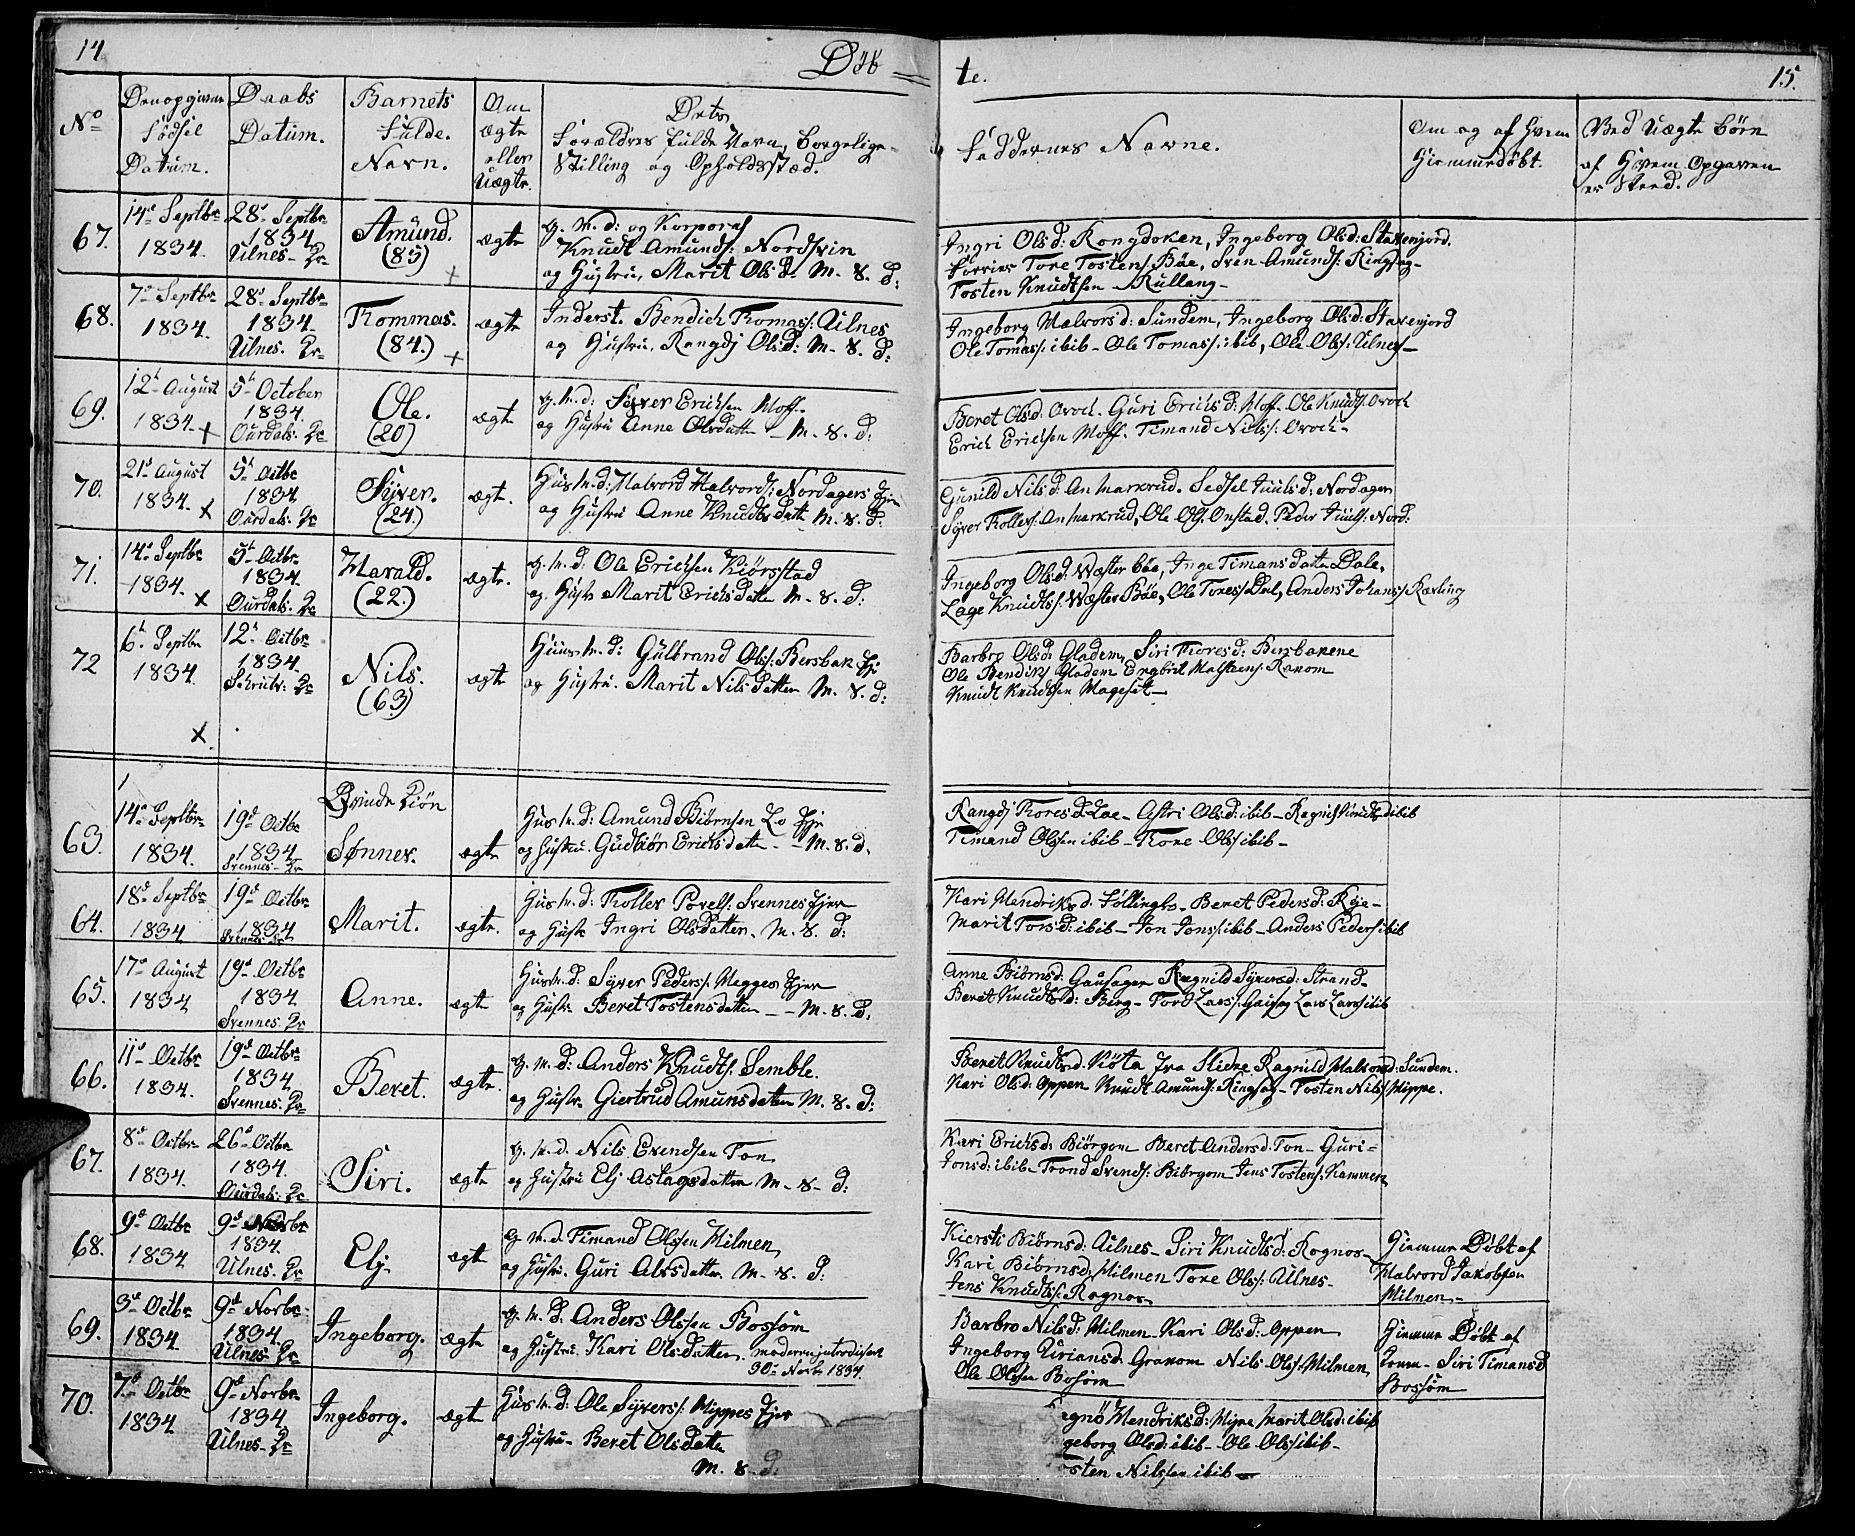 14.
Døb =
te.
15.
No
Den opgivne
Fødsel
Datum.
Daabs
Datum.
Barnets
fulde
Navn.
Om
ægte
eller
Uægte.
Dets
Forældres fulde Navn, borgelige
Stilling og Opholdsstæd.
Faddernes Navne.
Om og af hvem
Hiemmedøbt.
Ved Uægte børn
af Hvem Opgaven
er skeed.
67.
14de Septbr
1834.
28de Septbr
1834
Ulnes. Kr
Amund.
(83)
ægte
g. M. d: og Korporal
Knudt Amunds: Nordsvin
og Hustru, Marit Olsd: M. 8. d:
Ingri Olsd: Rongdoken, Ingeborg Olsd: Stavenjord.
Tore Tostens: Bøe, Sven Amunds: Ringsag-
Tosten Knudtsen Rullang-
68.
7de Septbr
1834.
28de Septbr
1834
Ulnes. Kr
Thommas.
(84.)
ægte
Inderst. Bendich Thomas: Ulnes
og Hustru, Rangdj Olsd: M. 8. d:
Ingeborg Halvorsd: Sundem, Ingeborg Olsd: Stavenjord
Ole Tomass: ibib- Ole Tomass: ibib, Ole Ols: Ulnes-
69.
12te August
1834.
5te October
1834.
Ourdals. Kr
Ole.
(20)
ægte
g. M. d: Syver Erichsen Hoff.
og Hustru Anne Olsdatter - M. 8. d:
Beret Olsd: Qvoch. Guri Erichsd: Hoff. Ole Knudts: Qvoch
Erich Erichsen Hoff. Timand Nilss: Qvoch-
70.
21de August
1834.
5te Octbr
1834
Ourdals. Kr
Syver.
(24.)
ægte.
Husm. d: Halvord Halvords: Nordagers Ejer
og Hustru Anne Knudtsdatte M. 8. d:
Gunild Nilsd: Anmarkrud. Sedsel Juulsd: Nordager
Syver Trollevs: Anmarkrud, Ole Ols: Onstad. Peder Juuls: Nord:
71.
14de Septbr
1834.
5te Octbr.
1834.
Ourdals. Kr
Harald.
(22.)
ægte.
g. M. d: Ole Erichsen Kiørsstad
og Hustr Marit Erichsdatter M. 8. d:
Ingeborg Olsd: Wæster bøe, Inge Timansdatter Dale,
Lage Knudts: Wæster Bøe, Ole Tores: Dal, Anders Johans: Rævling
72
6te Septbr
1834.
12te Octbr.
1834.
Skrut: Kr
Nils.
(63)
ægte
Husm. d: Gulbrand Ols: Bersbak Ejer
og Hustru. Marit Nilsdatter M. 8. d:
Barbro Olsd: Gladem, Siri Thoresd: Bersbakene
Ole Bendiks: Gladem Engbret Halstens: Ranom
Knudt Knudtsen Mageset-
1
Qvinde Kiøn
63.
14de Septbr.
1834.
19de Octbr
1834
Svennes. Kr
Sønnev.
ægte
Husm. d: Amund Biørnsen Lo Ejer
og Hustru. Gudbiør Erichsdatter - M. 8. d.
Rangdj Thoresd: Loe- Astri Olsd: ibib- Ragnil Knudtsd: ibib
Timand Olssen ibib- Thore Ols: ibib-
64.
18de Septbr
1834
19de Octbr
1834
Svennes. Kr
Marit.
ægte.
Husm. d: Troller Povels: Svennes Ejer
og Hustr Ingri Olsdatter. M. 8. d:
Kari Hendriksd: Føllinglo. Beret Pedersd: Røe-
Marit Torsd: ibib- Jon Jons: ibib- Anders Peders: ibib
65.
17de August
1834
19de Octbr
1834
Svennes. Kr
Anne.
ægte
Husm. d: Syver Peders: Megges Ejer
og Hustr. Beret Tostensdatter - - M. 8. d:
Anne Biørnsd: Gausager Ragnild Syversd: Strand-
Beret Knudtsd: Berg- Tord Lars: Gausag Lars Lars: ibib
66.
11te Octbr
1834.
19de Octbr.
1834
Svennes. Kr
Beret.
ægte.
g. M. d: Anders Knudts: Semble.
og Hustr. Giertrud Amunsdatter M. 8. d:
Beret Knudtsd: Køta fra Slidre Ragnild Halvorsd: Sundem.
Kari Olsd: Oppen Knudt Amunds: Ringsag- Tosten Nils: Hippe.
67.
8de Octbr
1834.
26de Octbr
1834.
Ourdals: Kr
Siri.
ægte
g. M. d. Nils Evendsen Ton
og Hustru Elj Aslagsdatter M. 8. d:
Kari Erichsd: Biørgom Beret Andersd: Ton- Guri-
Jonsd: ibib- Trond Svends: Biørgom Jens Tostens: Kammern
68.
9de Octbr
1834
9de Novbr
1834.
Ulnes. Kr
Elj.
ægte
g. M. d. Timand Olssen Hilmen
og Hustr. Guri Alssdatter. M. 8. d:
Kiersti Biørnsd: Ulnes- Siri Knudtsd: Rognos-
Kari Biørnsd: Hilmen Tore Ols: Ulnes-
Jens Knudts: Rognos
Hiemme Døbt af
Halvord Jakobsen
Hilmen.-
69.
3de Octbr
1834.
9de Novbr.
1834.
Ulnes. Kr
Ingeborg.
ægte
g. M. d: Anders Olssen Bossom
og Hustru. Kari Olsdatter. moderen introdisert
30te Novbr 1834.
Barbro Nilsd: Hilmen Kari Olsd: Oppen
Ingeborg Uriansd Granom Nils Ols: Hilmen
Ole Olssen Bosom
Hiemme Døbt af
Siri Timansd
Bossom
70.
7de Octbr
1834
9de Novbr
1834
Ulnes. Kr
Ingeborg.
ægte
Husm. d: Ole Syvers: Hippes Ejer
og Hustru- Beret Olsdatte
M. 8. d:
egnø Hendriksd: Hippe Marit Olsd: ibib
geborg Olsd: ibib- Ole Ols: ibib-
osten Nilssen ibib-